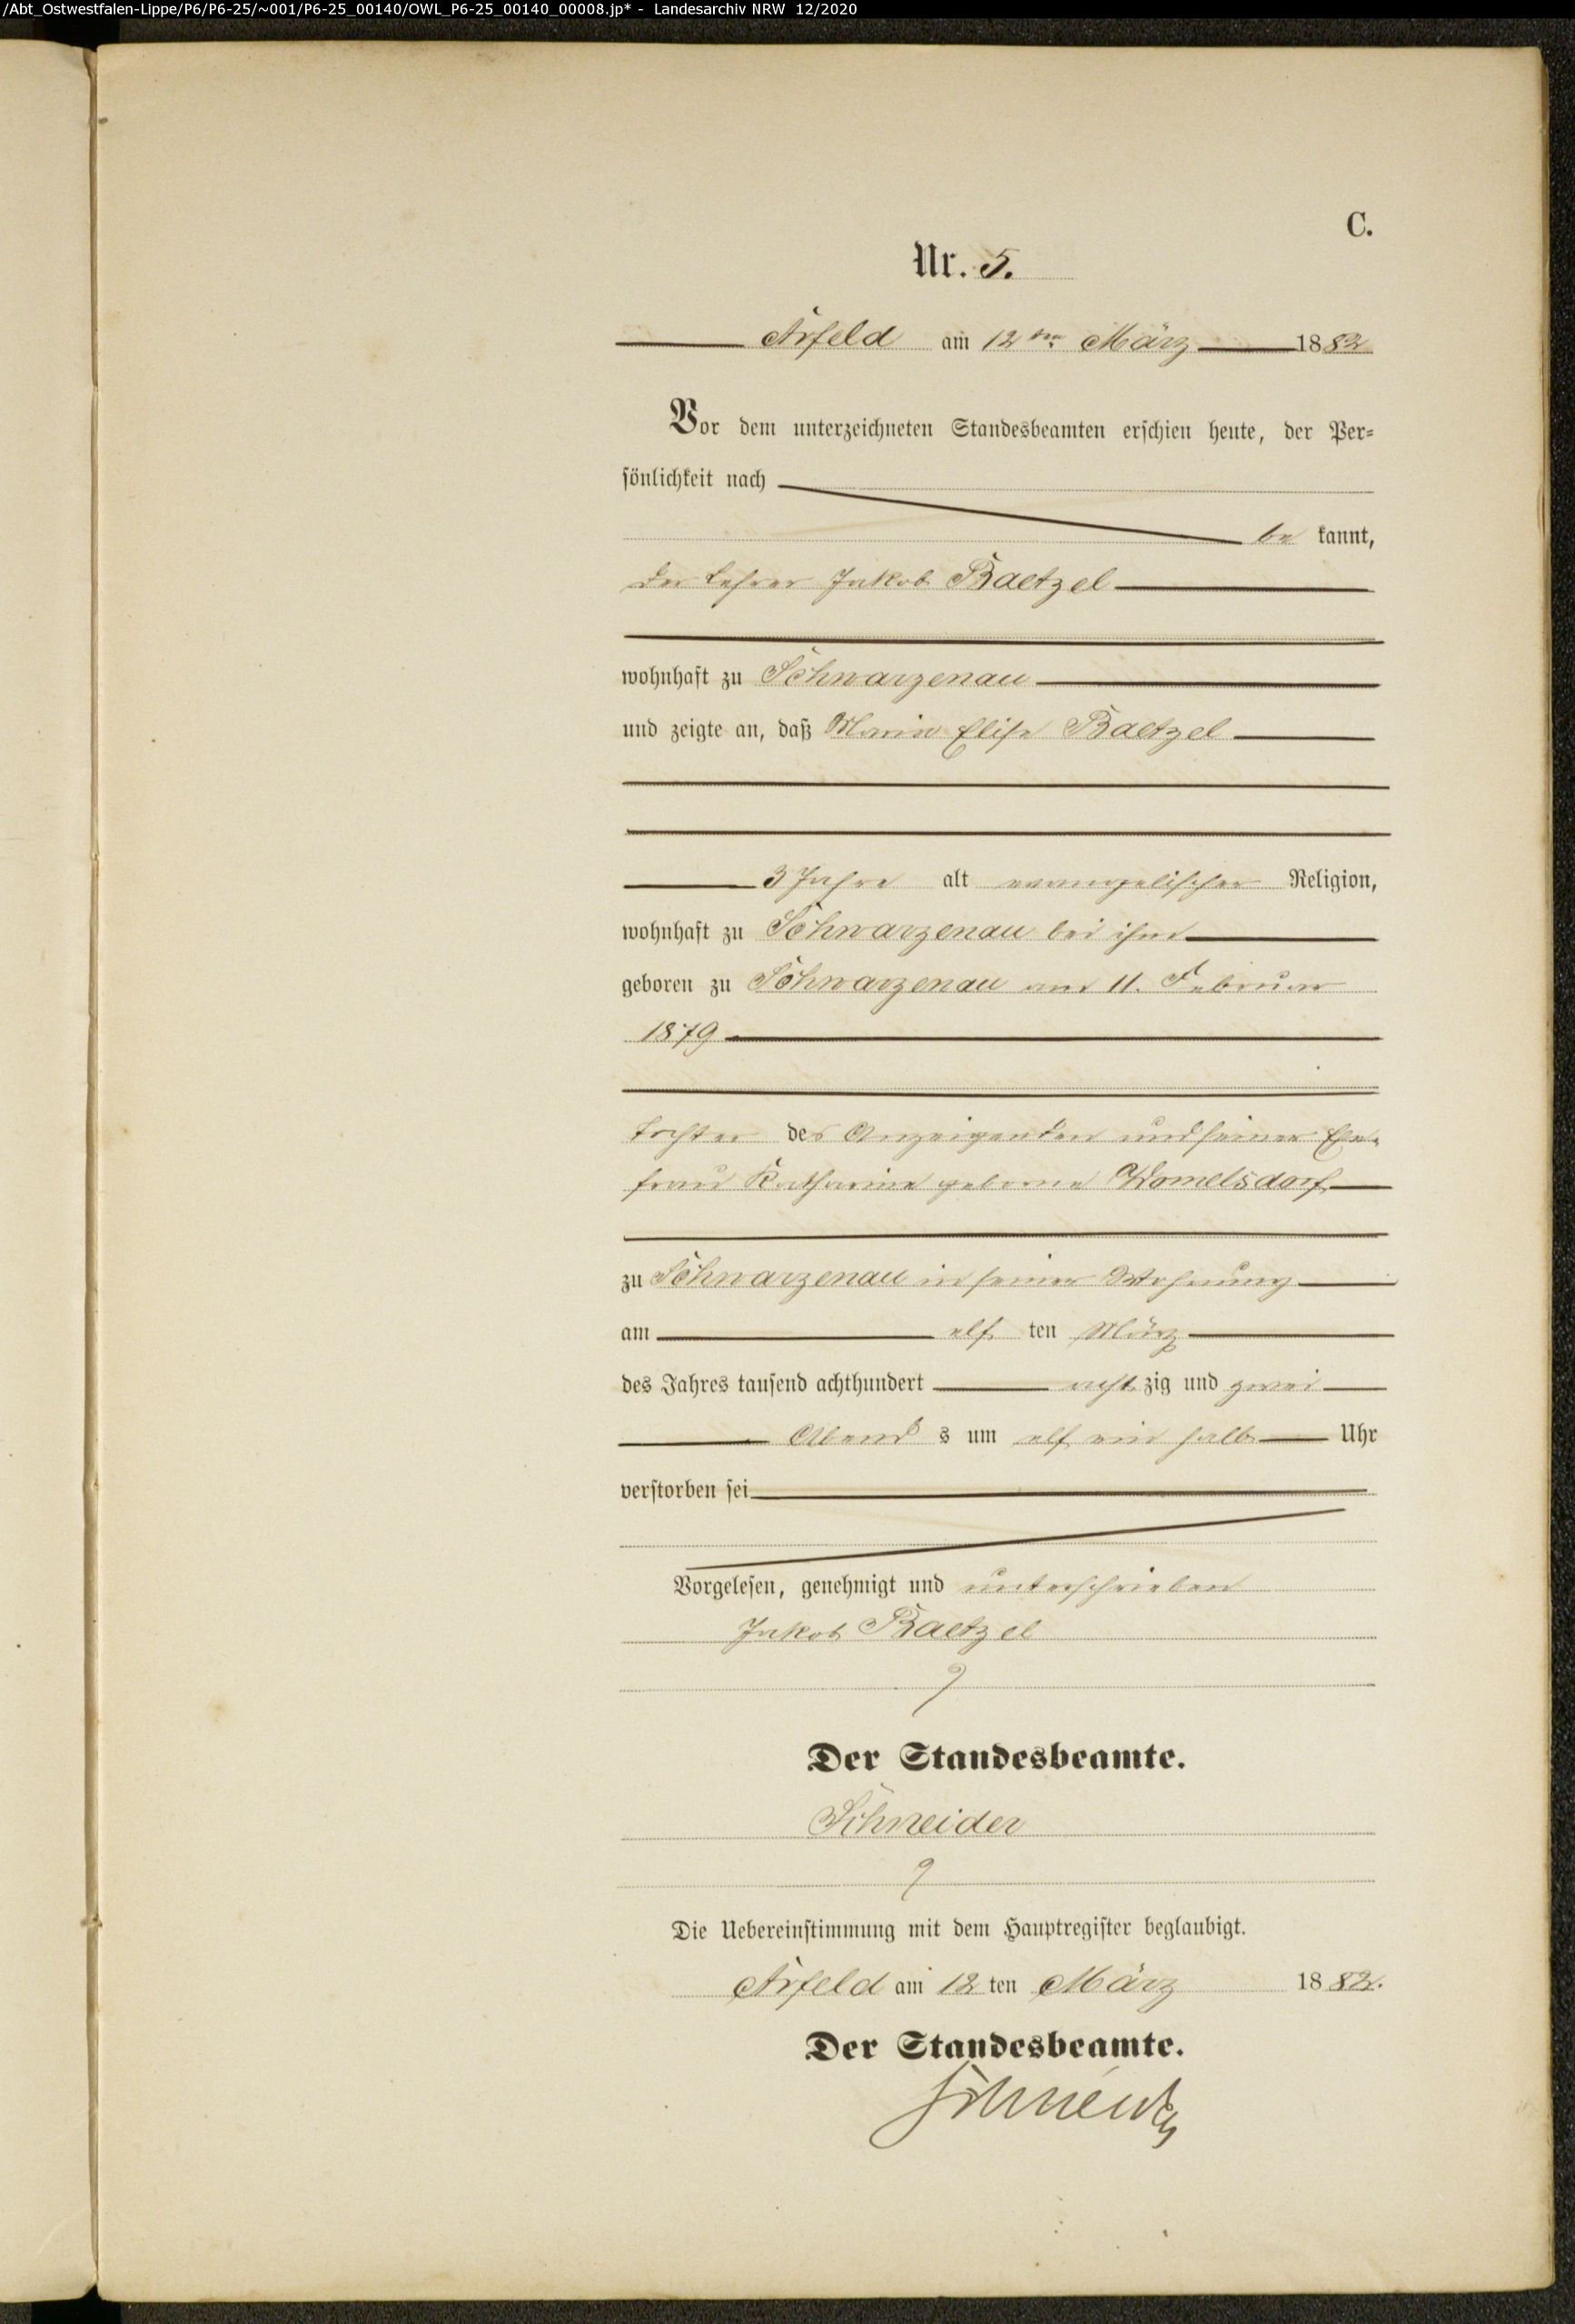 /Abt_Ostwestfalen-Lippe/P6/P6-25/~001/P6-25_00140/OWL_P6-25_00140_00008.jp* - Landesarchiv NRW 12/2020
C.
Nr. 5.
Arfeld am 12ten März 1882
Vor dem unterzeichneten Standesbeamten erschien heute, der Per-
sönlichkeit nach
be kannt,
der Lehrer Jakob Baetzel
wohnhaft zu Schwarzenau
und zeigte an, daß Maria Elise Baetzel
3 Jahre alt evangelischer Religion,
wohnhaft zu Schwarzenau bei ihm
geboren zu Schwarzenau am 11. Februar
1879
Tochter des Anzeigenden und seiner Ehe-
frau Katharine geborne Womelsdorf
zu Schwarzenau in seiner Wohnung
am elf ten März
des Jahres tausend achthundert acht zig und zwei
Abend s um elf ein halb Uhr
verstorben sei
Vorgelesen, genehmigt und unterschrieben
Jakob Baetzel
Der Standesbeamte.
Schneider
Die Uebereinstimmung mit dem Hauptregister beglaubigt.
Arfeld am 12 ten März 1882.
Der Standesbeamte.
Schneider